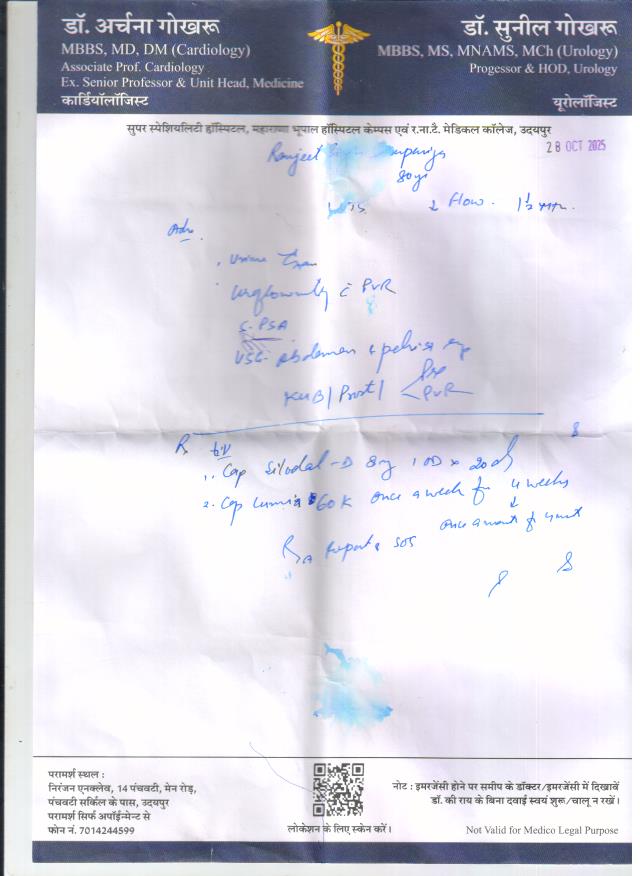 डॉ. अर्चना गोखरू
MBBS, MD, DM (Cardiology)
Associate Prof. Cardiology
Ex. Senior Professor & Unit Head, Medicine
कार्डियॉलॉजिस्ट
डॉ. सुनील गोखरू
MBBS, MS, MNAMS, MCh (Urology)
Progessor & HOD, Urology
यूरोलॉजिस्ट
सुपर स्पेशियलिटी हॉस्पिटल, महाराणा भूपाल हॉस्पिटल केम्पस एवं र.ना.टै. मेडिकल कॉलेज, उदयपुर
28 OCT 2025
Ranjeet
80yr
↓ Flow. 1 1/2
Adv
Urine
c̄ PVR
S. PSA
USG. Abdomen & pelvis
KUB / Prost /
Pre
PVR
R
1. Cap Silodal-D 8mg 1 OD x 20
2. Cap 60K once a week for 4 weeks
↓
once a month
Report & SOS
परामर्श स्थल :
निरंजन एनक्लेव, 14 पंचवटी, मेन रोड़,
पंचवटी सर्किल के पास, उदयपुर
परामर्श सिर्फ अपॉईन्मेन्ट से
फोन नं. 7014244599
लोकेशन के लिए स्केन करें।
नोट : इमरजेंसी होने पर समीप के डॉक्टर/इमरजेंसी में दिखावें
डॉ. की राय के बिना दवाई स्वयं शुरू/चालू न रखें।
Not Valid for Medico Legal Purpose